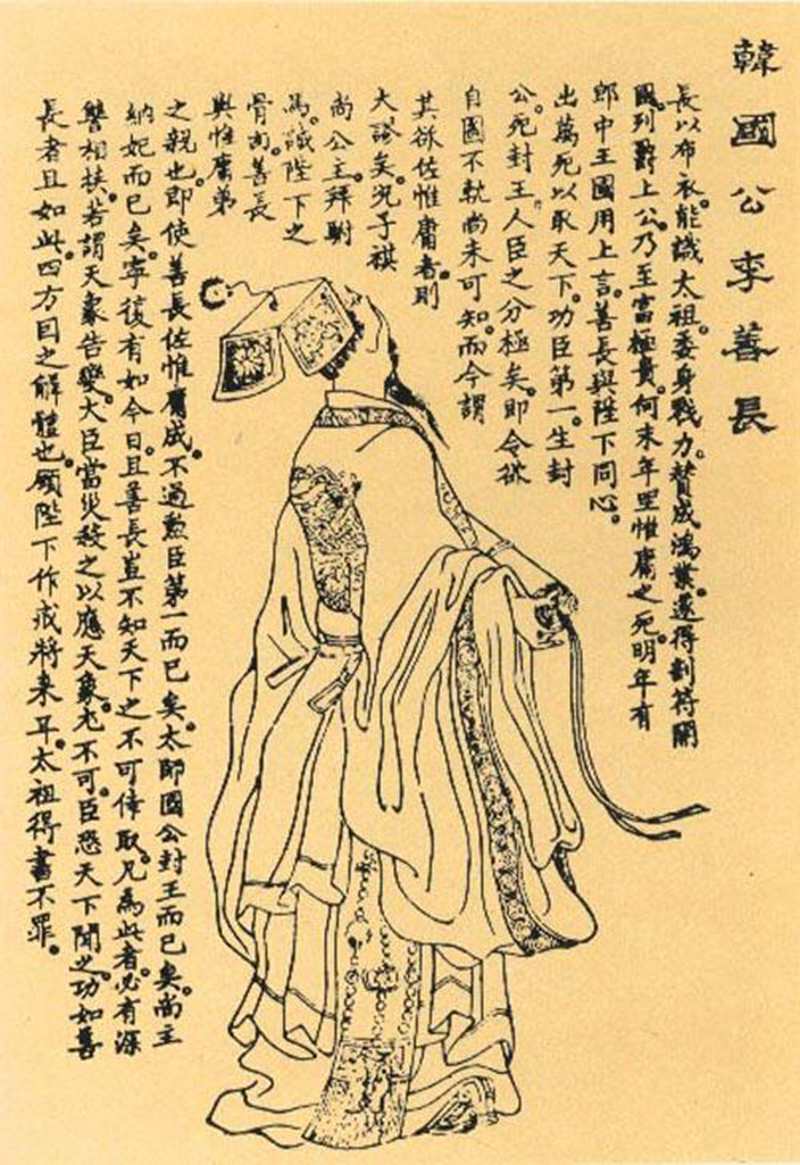 韓國公李善長
長以布衣能識太祖。委身戮力。贊成鴻業。遂得剖符開
國。列爵上公。乃至富極貴。何末年坐惟庸之死。明年有
郎中王國用上言。善長與陛下同心。
出萬死以取天下。功臣第一。生封
公。死封王。人臣之分極矣。即令欲
自圖不軌尚未可知。而今謂
其欲佐惟庸者。則
大謬矣。況子祺
尚公主。拜駙
馬。誠陛下之
骨肉。善長
與惟庸弟
之親也。即使善長佐惟庸成。不過勲臣第一而已矣。太師國公封王而已矣。尚主
納妃而已矣。寧復有如今日。且善長豈不知天下之不可倖取。凡為此者。必有深
讐相挾。若謂天象告變。大臣當災。殺之以應天象。尤不可。臣恐天下聞之。功如善
長者且如此。四方因之解體也。願陛下作戒將來耳。太祖得書不罪。